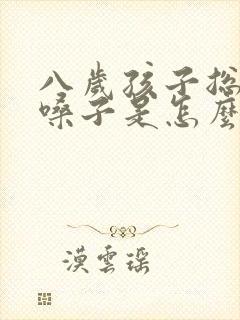 八歲孩子总
嗓子是怎麼
漢雲瑶